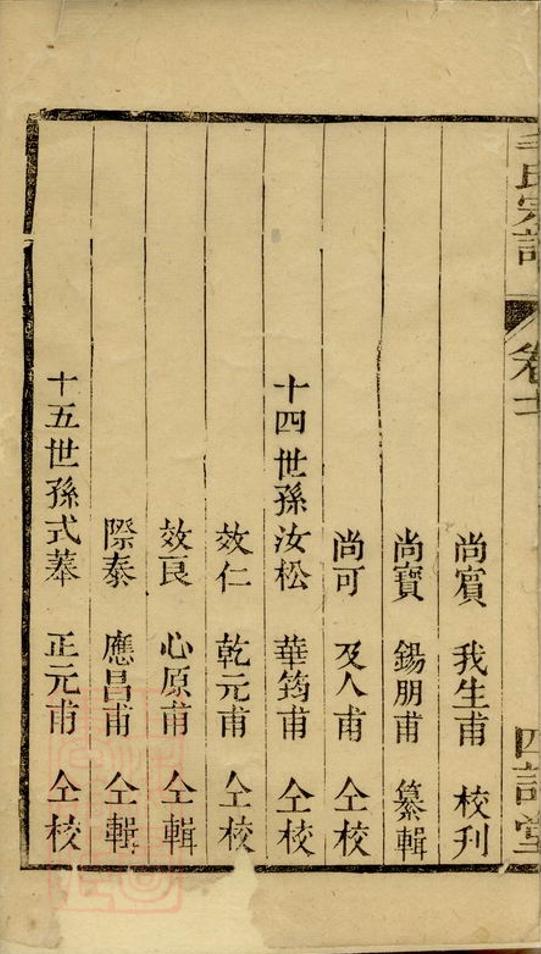 氏宗譜 卷十
尚賔 我生甫 校刋
尚寶 錫朋甫 纂輯
尚可 及人甫 仝校
十四世孫汝松 華筠甫 仝校
效仁 乾元甫 仝校
效良 心原甫 仝輯
際泰 應昌甫 仝輯
十五世孫式菶 正元甫 仝校